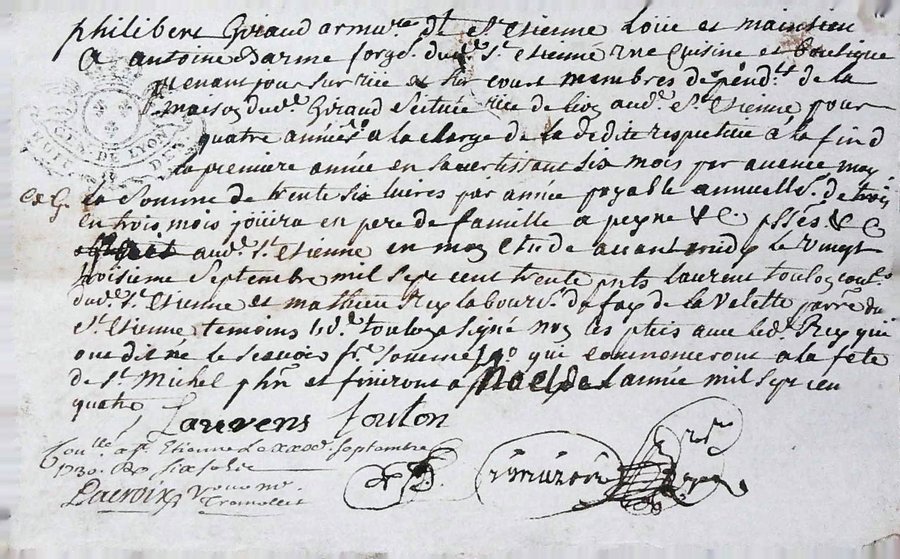 philibert Giraud armure. dt. St. Etienne Loüe et maintien
A antoine Darme forge. dud. St. Etienne une Cuisine et boutique
prenant jour sur rüe et sur court membres depend.t de la
maison dud. Giraud scittuée rüe de aud. St. Etienne pour
quatre années a la charge de la dedite respectiue à la fin d
la premiere année en sauertissant six mois par auance
la Somme de trente six liures par année payable annuell.t de trois
C G.
en trois mois joüira en pere de famille a peyne & C. & C
aud. St. Etienne en mon Etude auant midy le vingt
troisieme Septembre mil sept cent trente pnts Laurent toulon
dud. St. Etienne et mathieu Rey labour. de la Valette parre du
St. Etienne temoins led. toulon signé non les pties auec led. Rey qui
ont dit ne le scauoir qui commenceront a la fête
de St. Michel phn et finiront a Noel de l'année mil sept cen
quatre
Laurens toulon
a St Etienne Le Septembre
1730. six sols
Lacroix